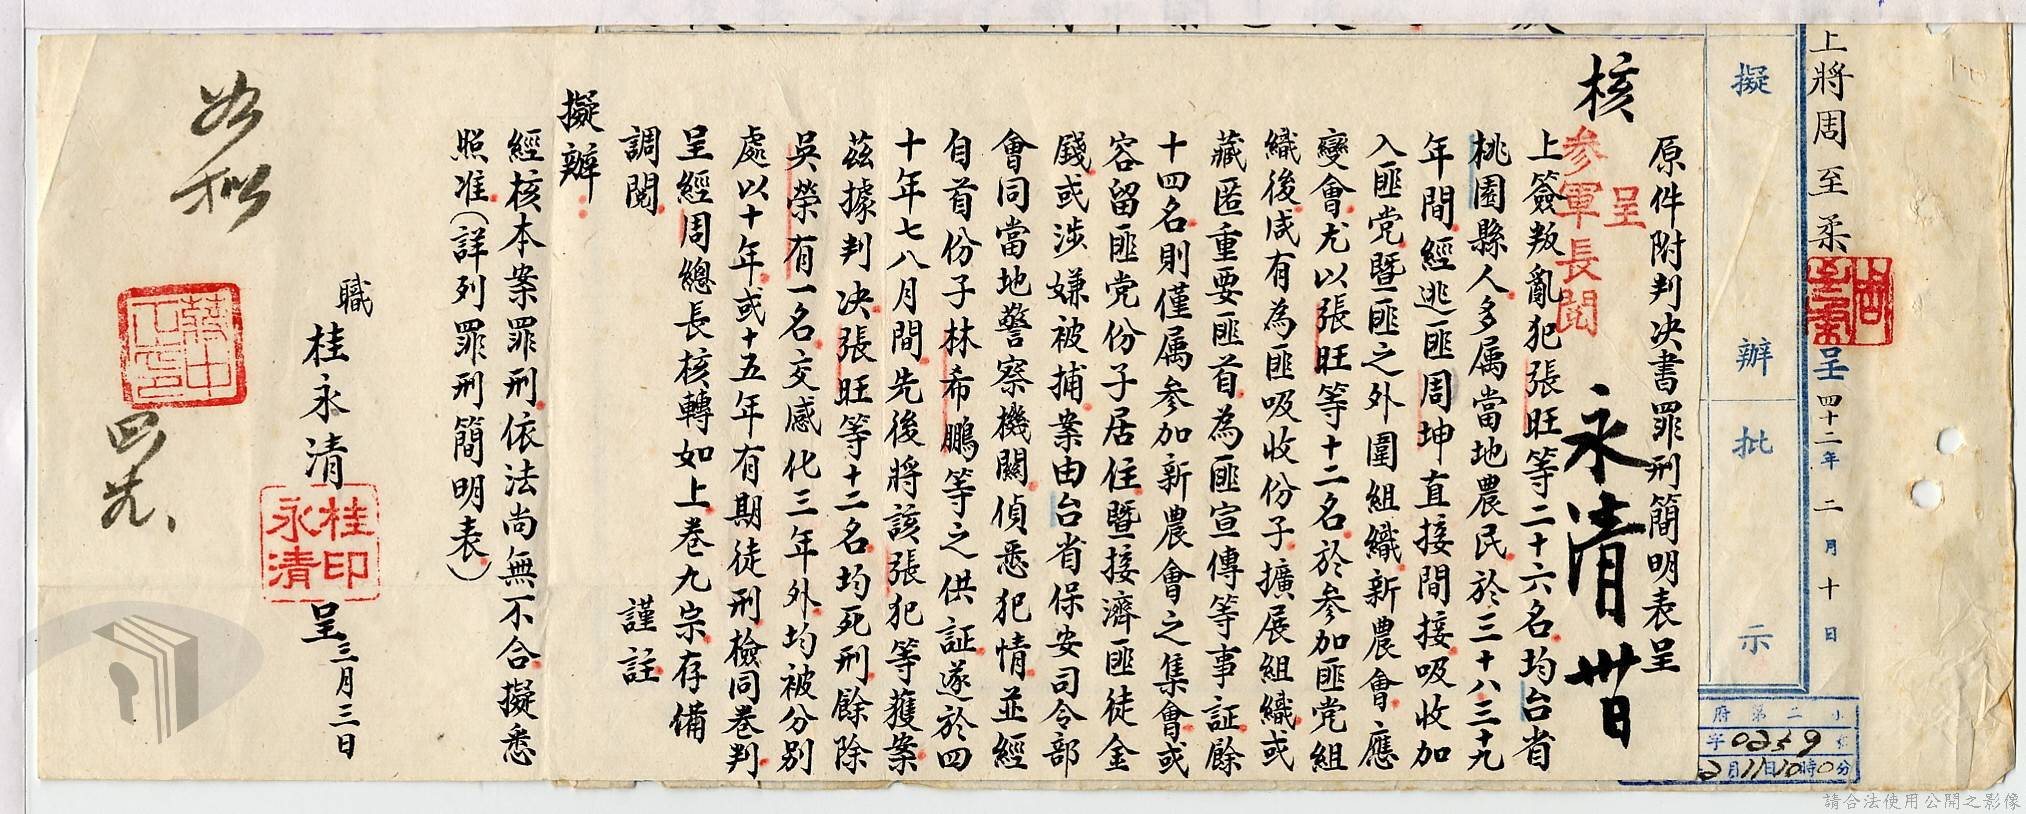 上將周至柔
周至柔
呈四十二年二月十日
擬辦
批示
府第二
字0259
2月11日10時0分
原件附判決書罪刑簡明表呈
核
呈
參軍長閱
永清
上簽叛亂犯張旺等二十六名均台省
桃園縣人多属當地農民於三十八三十九
年間經逃匪周坤直接間接吸收加
入匪党暨匪之外圍組織新農會應
變會尤以張旺等十二名於參加匪党組
織後或有為匪吸收份子擴展組織或
藏匿重要匪首為匪宣傳等事証餘
十四名則僅属參加新農會之集會或
容留匪党份子居住暨接濟匪徒金
錢或涉嫌被捕案由台省保安司令部
會同當地警察機關偵悉犯情並經
自首份子林希鵬等之供証遂於四
十年七八月間先後將該張犯等獲案
茲據判决張旺等十二名均死刑餘除
吳榮有一名交感化三年外均被分別
處以十年或十五年有期徒刑檢同卷判
呈經周總長核轉如上卷九宗存備
調閱　謹註
擬辦
經核本案罪刑依法尚無不合擬悉
照准（詳列罪刑簡明表）
職桂永清呈三月三日
桂永清印
如擬
蔣中正印
請合法使用公開之影像